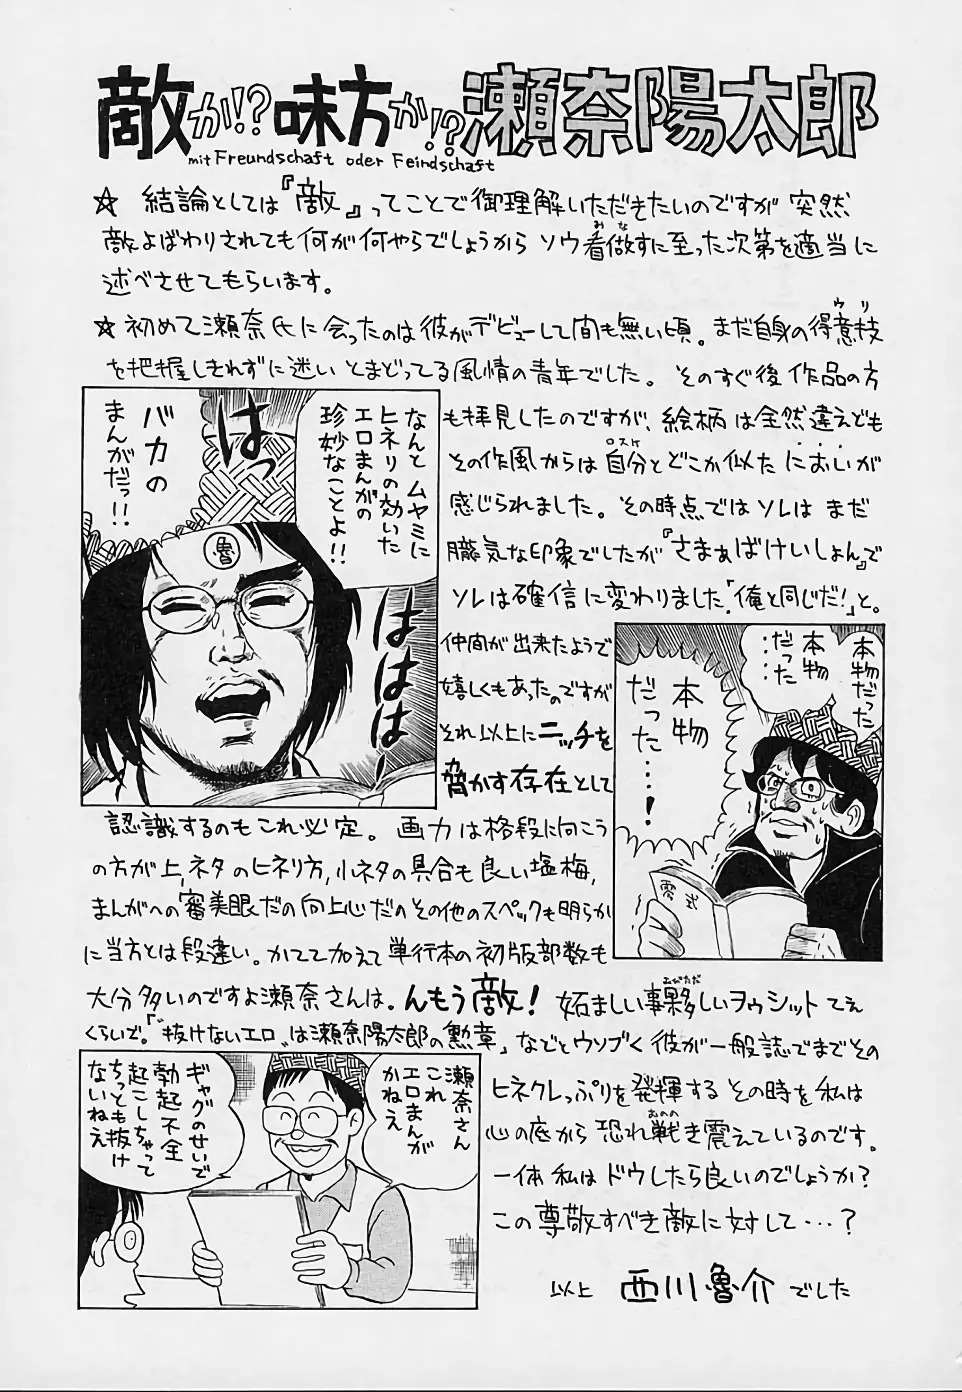 敵か!?味方か!?瀬奈陽太郎
mit Freundschaft oder Feindschaft
☆ 結論としては『敵』ってことで御理解いただきたいのですが 突然
敵よばわりされても何が何やらでしょうから ソウ看做すに至った次第を適当に
述べさせてもらいます。
☆初めて瀬奈氏に会ったのは彼がデビューして間も無い頃。まだ自身の得意技
を把握しきれずに迷い とまどってる風情の青年でした。 そのすぐ後 作品の方
も拝見したのですが、絵柄は全然違えども
その作風からは自分とどこか似たにおいが
感じられました。その時点ではソレはまだ
朧気な印象でしたが『さまぁばけいしょん』で
ソレは確信に変わりました.「俺と同じだ!」と。
仲間が出来たようで
嬉しくもあったのですが
それ以上にニッチを
脅かす存在として
認識するのもこれ必定。 画力は格段に向こう
の方が上,ネタのヒネリ方,小ネタの具合も良い塩梅,
まんがへの審美眼だの向上心だのその他のスペックも明らか
に当方とは段違い。かてて加えて単行本の初版部数も
大分多いのですよ瀬奈さんは。んもう敵! 妬ましい事夥しいヲゥシットてえ
くらいで。「〝抜けないエロ〟は瀬奈陽太郎の勲章」などとウソブく彼が一般誌でまでその
ヒネクレっぷりを発揮する その時を私は
心の底から 恐れ戦き震えているのです。
一体 私は ドウしたら良いのでしょうか?
この尊敬すべき敵に対して…?
以上 西川魯介 でした
なんと ムヤミに
ヒネリの効いた
エロまんがの
珍妙なことよ!!
はっ
バカの
まんがだっ!!
魯
ははは
本物だった
本物
だった
……
本物
だった…!
零式
瀬奈さん
これ
エロまんが
かねえ
ギャグのせいで
勃起不全
起こしちゃって
ちっとも抜け
ないねえ